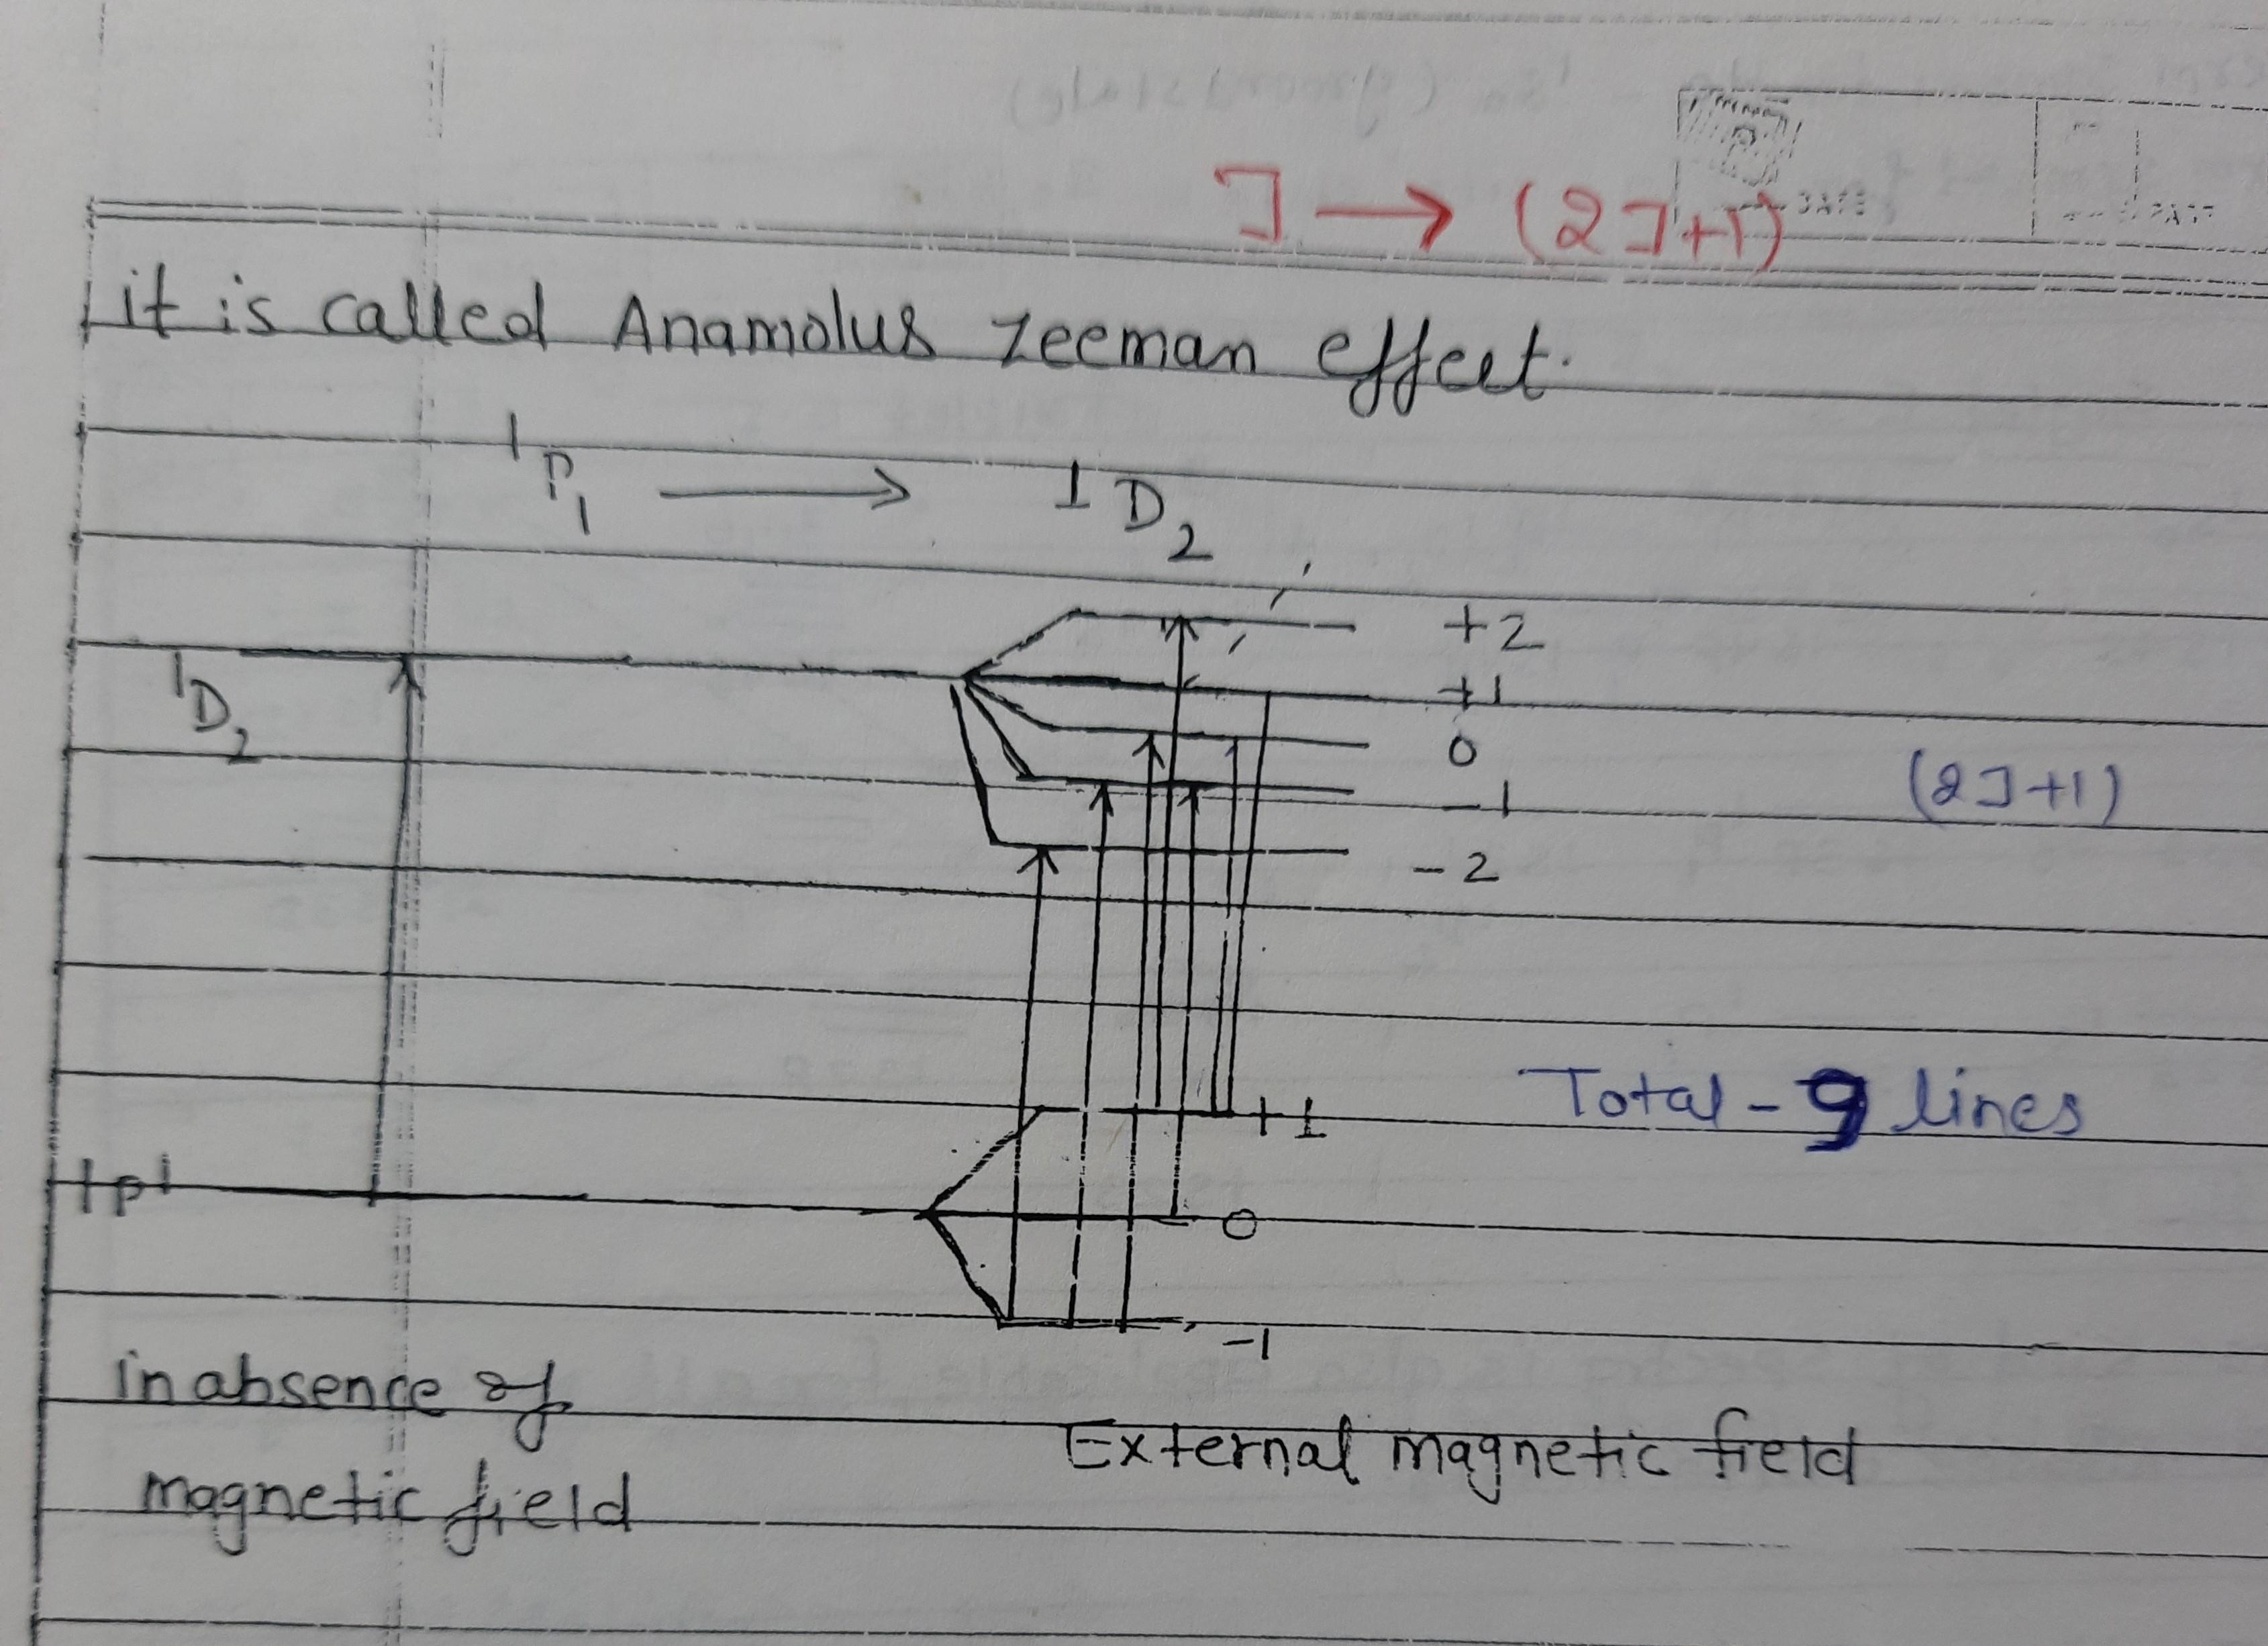 J → (2J+1)
it is called Anamolus zeeman effect.
¹P₁ → ¹D₂
+2
+1
¹D₂
0
-1
(2J+1)
-2
Total - 9 lines
+1
¹P¹
0
-1
in absence of
External magnetic field
magnetic field